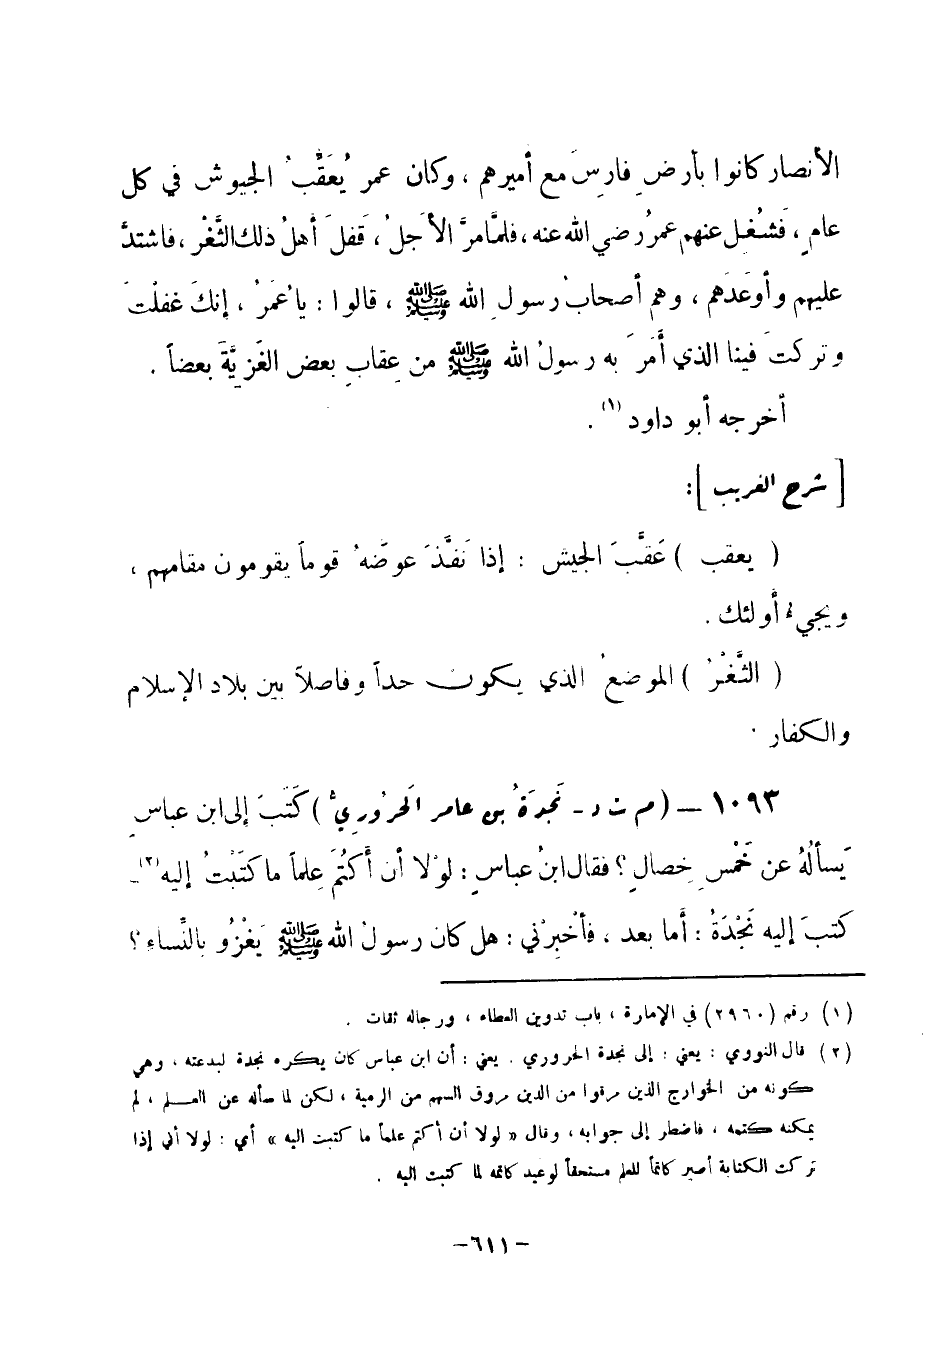 الأنصار كانوا بأرضِ فارِسَ مع أميرهم ، وكان عمر يُعَقِّبُ الجيوش في كل
عامٍ ، فَشُغِل عنهم عمرُ رضي الله عنه ، فلمَّا مرَّ الأَجلُ ، قَفلَ أهلُ ذلك الثَّغْر ، فاشتدَّ
عليهم وأوعَدَهم ، وهم أصحابُ رسولِ الله ﷺ ، قالوا : يا عُمَرُ ، إنكَ غفلْتَ
وتركتَ فينا الذي أَمَرَ به رسولُ الله ﷺ من عِقابِ بعض الغَزِيَّةِ بعضاً .
أخرجه أبو داود (١) .
[ شرح الغريب ] :
( يعقب ) عَقَّبَ الجيش : إذا نَفَّذَ عوضَهُ قوماً يقومون مقامهم ،
ويجيءُ أولئك .
( الثَّغْرُ ) الموضعُ الذي يكون حداً وفاصلاً بين بلاد الإسلام
والكفار .
١٠٩٣ — ( م ت د - نَجْدَةُ بن عامر الحَرُورِيُّ ) كَتَبَ إلى ابن عباسٍ
يَسألُهُ عن خَمْسِ خِصالٍ ؟ فقال ابنُ عباسٍ : لوْلا أن أَكتُمَ عِلماً ما كتَبْتُ إليه (٢) –
كتبَ إليه نَجْدَةُ : أما بعد ، فأخْبِرْني : هل كان رسولُ الله ﷺ يَغْزُو بالنِّساءِ ؟
(١) رقم (٢٩٦٠) في الإمارة ، باب تدوين العطاء ، ورجاله ثقات .
(٢) قال النووي : يعني : إلى نجدة الحروري . يعني : أن ابن عباس كان يكره نجدة لبدعته ، وهي
كونه من الخوارج الذين مرقوا من الدين مروق السهم من الرمية ، لكن لما سأله عن العلم ، لم
يمكنه كتمه ، فاضطر إلى جوابه ، وقال « لولا أن أكتم علماً ما كتبت اليه » أي : لولا أني إذا
تركت الكتابة أصير كاتماً للعلم مستحقاً لوعيد كاتمه لما كتبت اليه .
-٦١١-